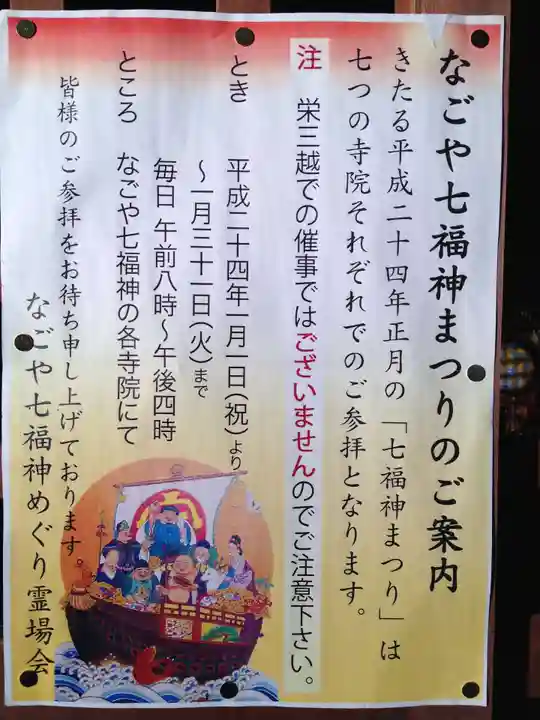 なごや七福神まつりのご案内
きたる平成二十四年正月の「七福神まつり」は
七つの寺院それぞれでのご参拝となります。
注 栄三越での催事ではございませんのでご注意下さい。
とき 平成二十四年一月一日(祝)より
～一月三十一日(火)まで
毎日 午前八時～午後四時
ところ なごや七福神の各寺院にて
皆様のご参拝をお待ち申し上げております。
なごや七福神めぐり霊場会